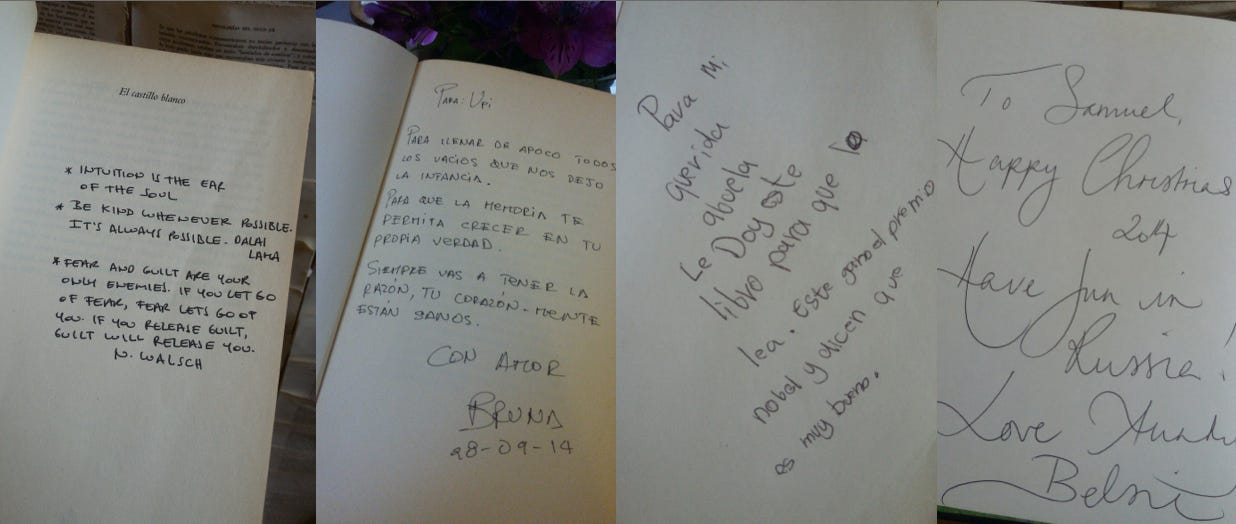 El castillo blanco
* INTUITION IS THE EAR
OF THE SOUL
* BE KIND WHENEVER POSSIBLE.
IT'S ALWAYS POSSIBLE. DALAI
LAMA
* FEAR AND GUILT ARE YOUR
ONLY ENEMIES. IF YOU LET GO
OF FEAR, FEAR LETS GO OF
YOU. IF YOU RELEASE GUILT,
GUILT WILL RELEASE YOU.
N. WALSCH
PARA: UPI
PARA LLENAR DE APOCO TODOS
LOS VACIOS QUE NOS DEJO
LA INFANCIA.
PARA QUE LA MEMORIA TE
PERMITA CRECER EN TU
PROPIA VERDAD.
SIEMPRE VAS A TENER LA
RAZÓN, TU CORAZÓN-MENTE
ESTÁN SANOS.
CON AMOR
BRUNA
28-09-14
Para mi
querida
abuela
Le Doy este
libro para que lo
lea. Este gano el premio
nobel y dicen que
es muy bueno.
To Samuel,
Happy Christmas
2014
Have fun in
Russia!
Love